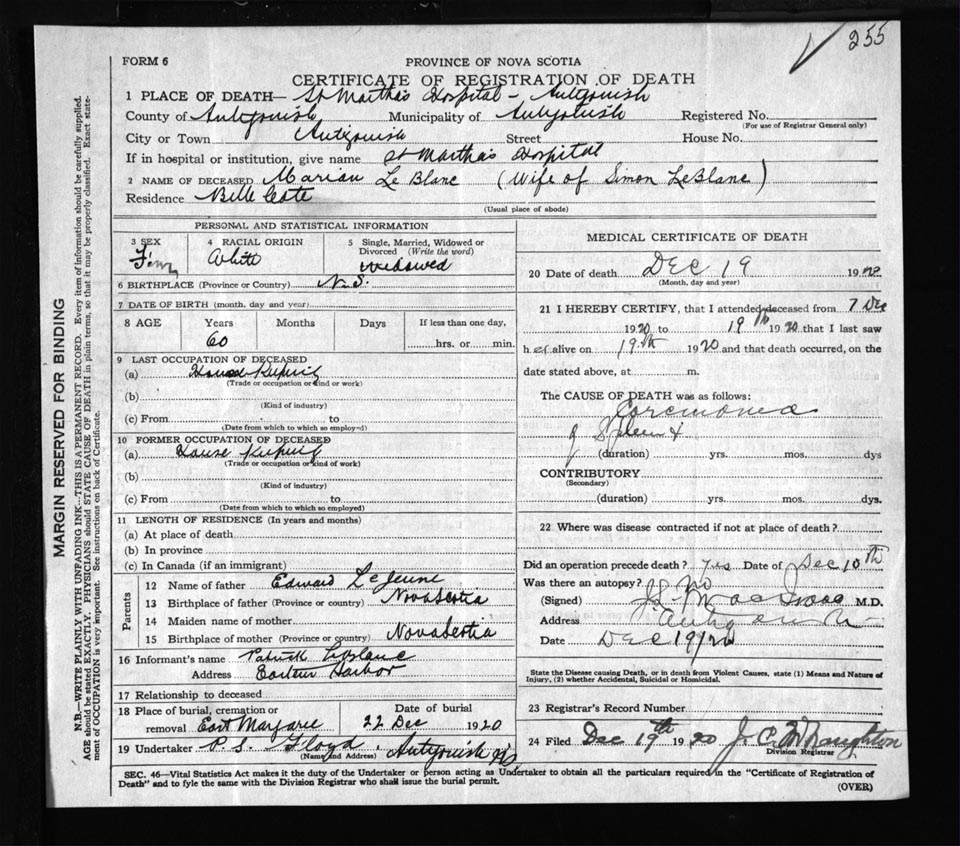 255
FORM 6
PROVINCE OF NOVA SCOTIA
CERTIFICATE OF REGISTRATION OF DEATH
1 PLACE OF DEATH— St Martha's Hospital - Antigonish
County of Antigonish Municipality of Antigonish Registered No.
(For use of Registrar General only)
City or Town Antigonish Street House No.
If in hospital or institution, give name St Martha's Hospital
2 NAME OF DECEASED Marian Le Blanc (Wife of Simon LeBlanc)
Residence Belle Cote
(Usual place of abode)
PERSONAL AND STATISTICAL INFORMATION
3 SEX 4 RACIAL ORIGIN 5 Single, Married, Widowed or Divorced (Write the word)
White widowed
6 BIRTHPLACE (Province or Country) N.S.
7 DATE OF BIRTH (month, day and year)
8 AGE Years Months Days If less than one day,
60 hrs. or min.
9 LAST OCCUPATION OF DECEASED
(a) House Keeping
(Trade or occupation or kind or work)
(b)
(Kind of industry)
(c) From to
(Date from which to which so employed)
10 FORMER OCCUPATION OF DECEASED
(a) House Keeping
(Trade or occupation or kind of work)
(b)
(Kind of industry)
(c) From to
(Date from which to which so employed)
11 LENGTH OF RESIDENCE (In years and months)
(a) At place of death
(b) In province
(c) In Canada (if an immigrant)
Parents
12 Name of father Edward LeJeune
13 Birthplace of father (Province or country) Nova Scotia
14 Maiden name of mother
15 Birthplace of mother (Province or country) Nova Scotia
16 Informant's name Patrick LeBlanc
Address Eastern Harbor
17 Relationship to deceased
18 Place of burial, cremation or removal East Margaree Date of burial 22 Dec 1920
19 Undertaker P.S. Floyd, Antigonish NS
(Name and Address)
MEDICAL CERTIFICATE OF DEATH
20 Date of death DEC 19 1920
(Month, day and year)
21 I HEREBY CERTIFY, that I attended deceased from 7 Dec
1920 to 19th 1920 that I last saw
her alive on 19th 1920 and that death occurred, on the
date stated above, at m.
The CAUSE OF DEATH was as follows:
of Spleen
(duration) yrs. mos. dys
CONTRIBUTORY
(Secondary)
(duration) yrs. mos. dys.
22 Where was disease contracted if not at place of death?
Did an operation precede death? yes Date of Dec 10th
Was there an autopsy? No
(Signed) M.D.
Address Antigonish
Date DEC 19/20
State the Disease causing Death, or in death from Violent Causes, state (1) Means and Nature of
Injury, (2) whether Accidental, Suicidal or Homicidal.
23 Registrar's Record Number
24 Filed Dec 19th 1920 J. C. McNaughton
Division Registrar
SEC. 46—Vital Statistics Act makes it the duty of the Undertaker or person acting as Undertaker to obtain all the particulars required in the "Certificate of Registration of
Death" and to fyle the same with the Division Registrar who shall issue the burial permit.
(OVER)
MARGIN RESERVED FOR BINDING
N.B.—WRITE PLAINLY WITH UNFADING INK—THIS IS A PERMANENT RECORD. Every item of information should be carefully supplied.
AGE should be stated EXACTLY. PHYSICIANS should STATE CAUSE OF DEATH in plain terms, so that it may be properly classified. Exact state-
ment of OCCUPATION is very important. See instructions on back of Certificate.